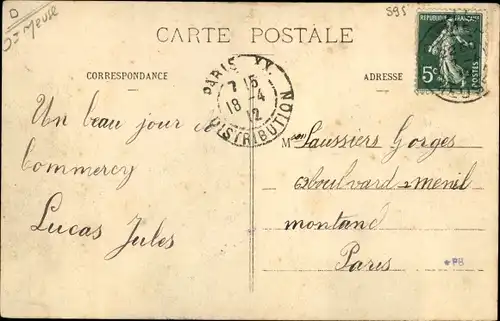 D
Dt Meuse
595
CARTE POSTALE
REPUBLIQUE FRANÇAISE
5c
POSTES
CORRESPONDANCE
ADRESSE
PARIS XX
7 15
18 -4
12
DISTRIBUTION
Un beau jour de
Commercy
Lucas Jules
Mon Saussiers Gorges
62 boulvard menil
montand
Paris
PB